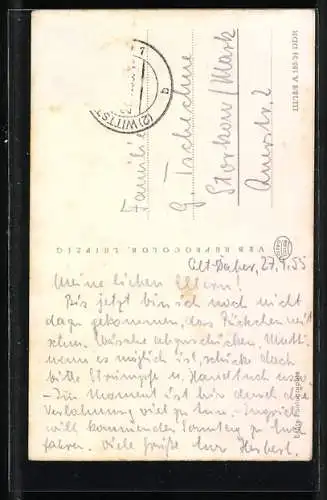 Alt-Daber, 27.4.55
Meine lieben Eltern!
Bis jetzt bin ich noch nicht
dazu gekommen, das Päckchen mit
Wäsche abzuschicken. Mutti,
wenn es möglich ist, schicke doch
bitte Strümpfe u. Handtuch
Im Moment ist hier durch die
viel zu tun. Ingrid
will kommenden Sonntag zu
fahren. Viele Grüße Euer Herbert.
VEB RUPROCOLOR, LEIPZIG
Familie
G. Tschechne
Storkow/Mark
2
WITTST
b
DDR